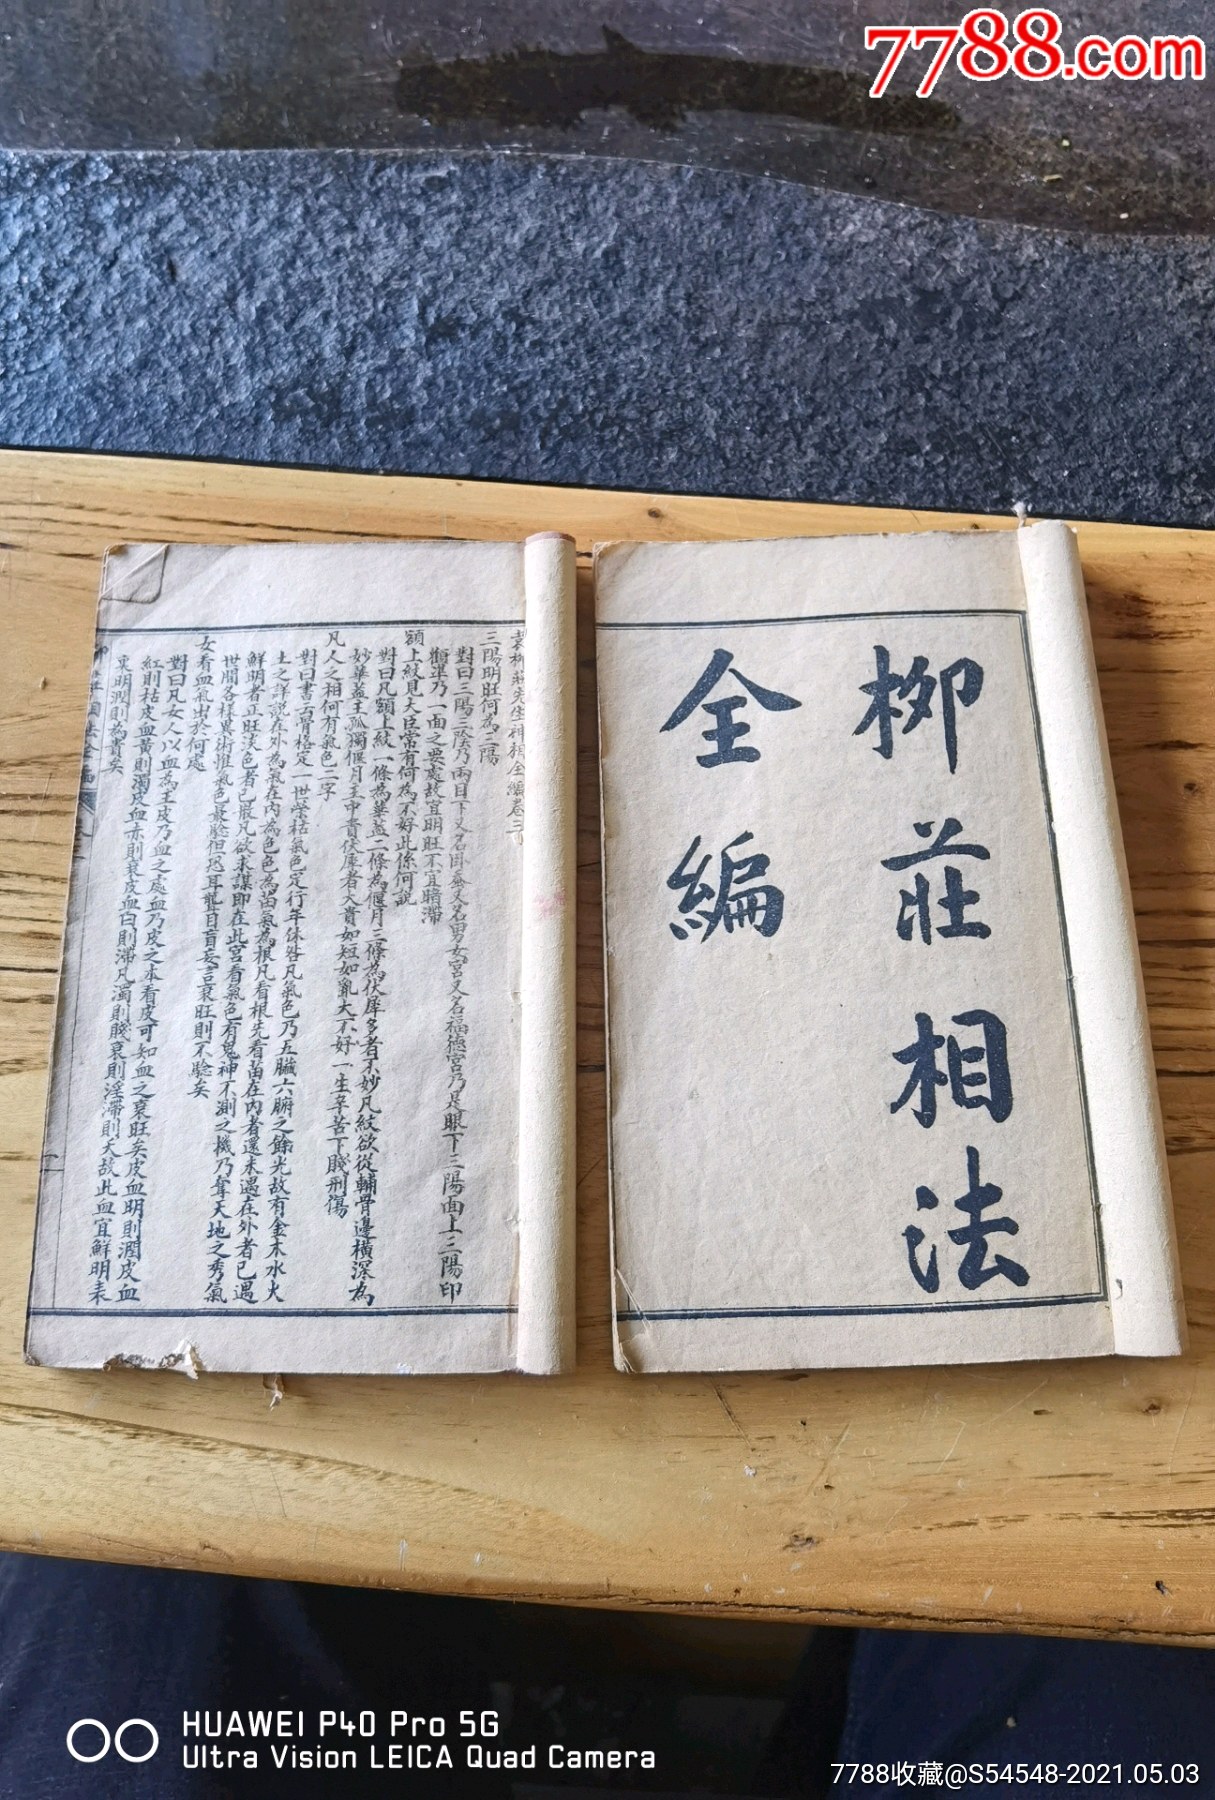 7788.com
柳莊相法
全編
袁柳莊先生神相全編卷三
三陽明旺何為三陽
對曰三陽三陰乃兩目下又名卧蚕又名男女宮又名福德宮乃是眼下三陽面上三陽印
準乃一面之要處故宜明旺不宜暗滯
額上紋見大臣常有何為不好此係何說
對曰凡額上紋一條為華蓋二條為偃月三條為伏犀多者不妙凡紋欲從輔骨邊橫深為
妙華蓋主孤獨偃月主中貴伏犀者大貴如短如亂大不好一生辛苦下賤刑傷
凡人之相何有氣色二字
對曰書云骨格定一世榮枯氣色定行年休咎凡氣色乃五臟六腑之餘光故有金木水火
土之詳說在外為氣在內為色色為苗氣為根凡看根先看苗在內者還未遇在外者已遇
鮮明者正旺淡色者已散凡欲求謀即在此宮看氣色有鬼神不測之機乃奪天地之秀氣
世間各樣異術惟氣色最驗但恐耳聾目盲妄言衰旺則不驗矣
女看血氣出於何處
對曰凡女人以血為主皮乃血之處血乃皮之本看皮可知血之衰旺矣皮血明則潤皮血
紅則枯皮血黃則濁皮血赤則衰皮血白則滯凡濁則賤衰則淫滯則夭故此血宜鮮明表
裏明潤則為貴矣
HUAWEI P40 Pro 5G
Ultra Vision LEICA Quad Camera
7788收藏@S54548-2021.05.03